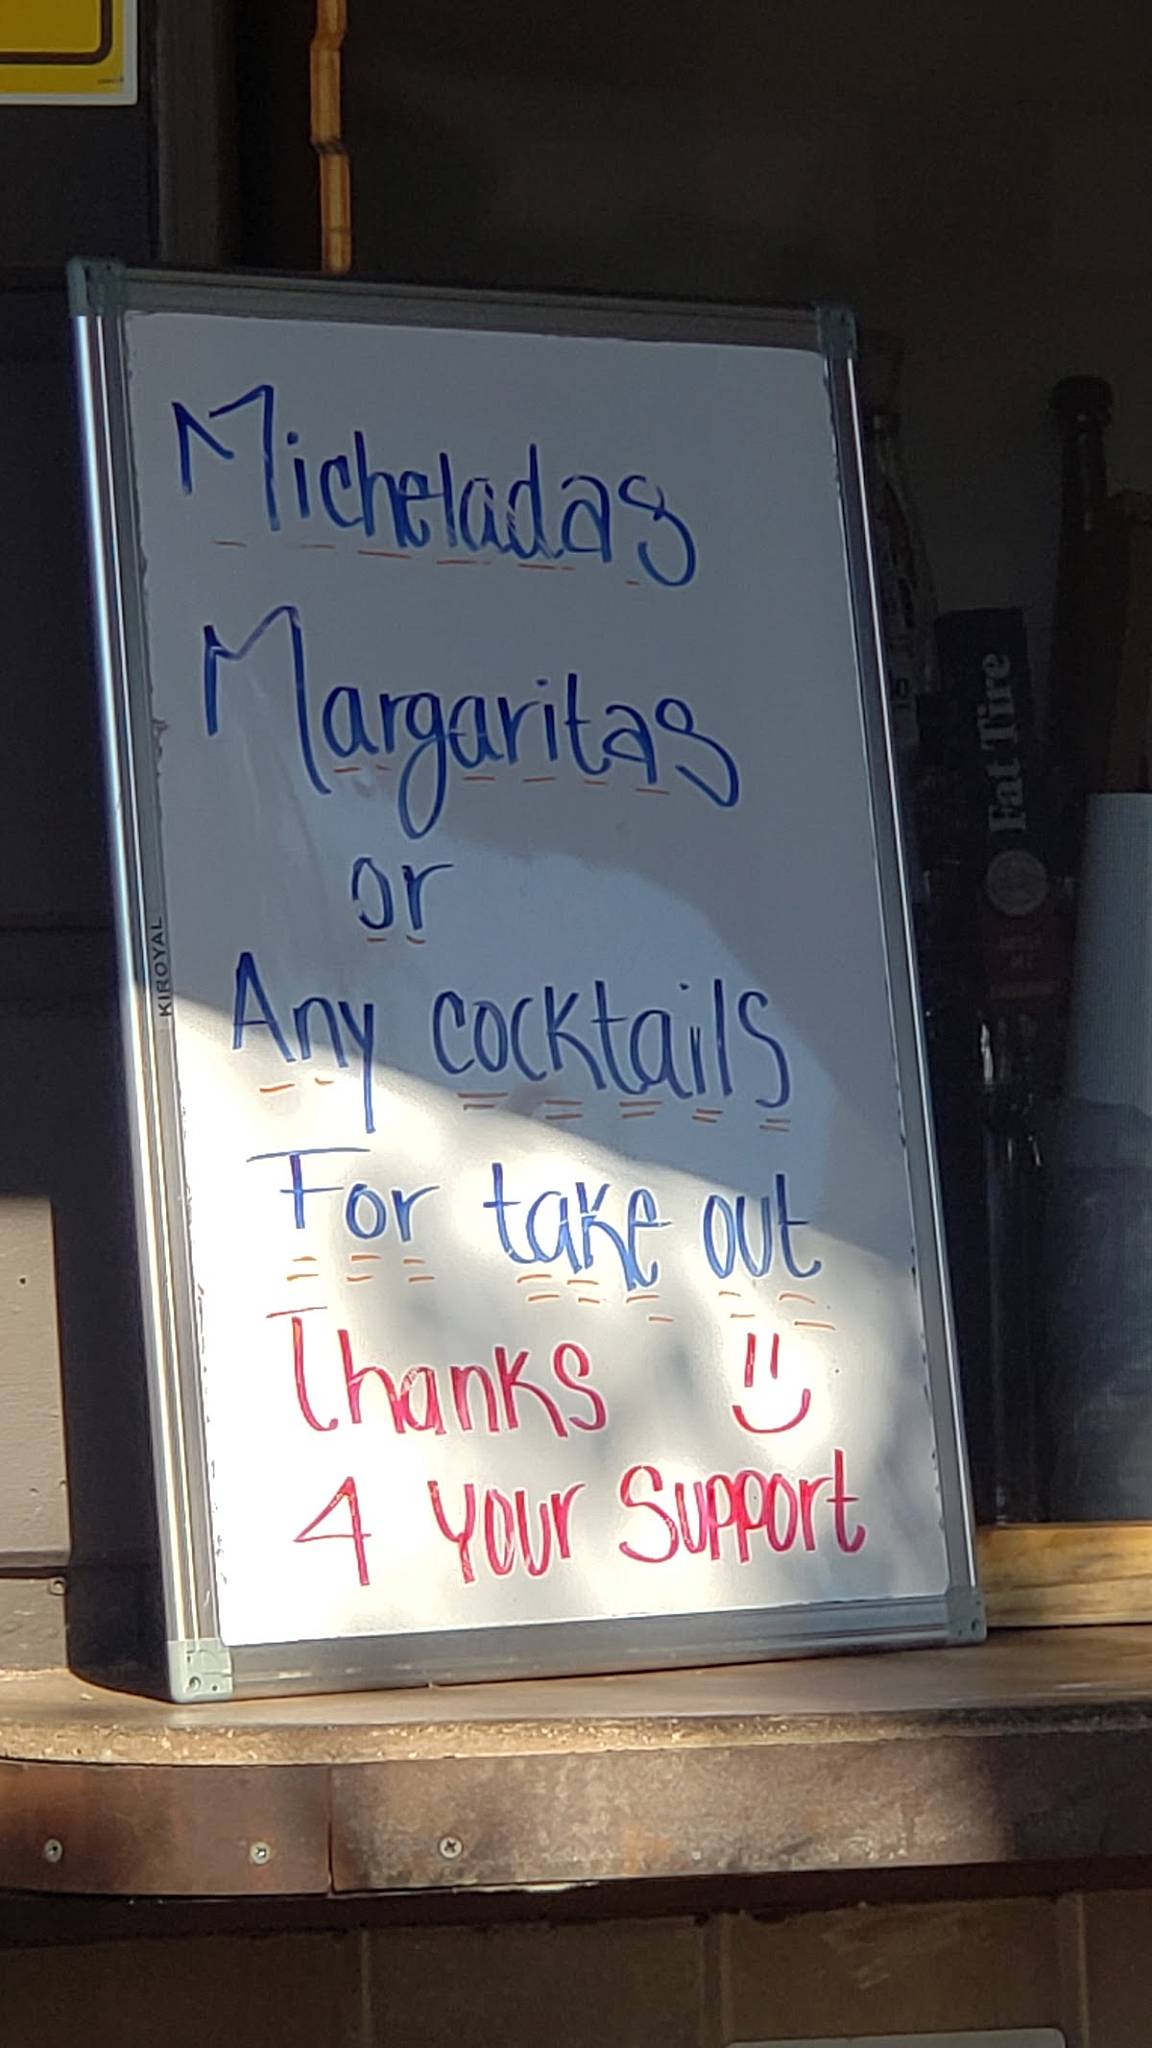 Micheladas
Margaritas
or
Any cocktails
For take out
Thanks
4 your support
KIROYAL
Fat Tire